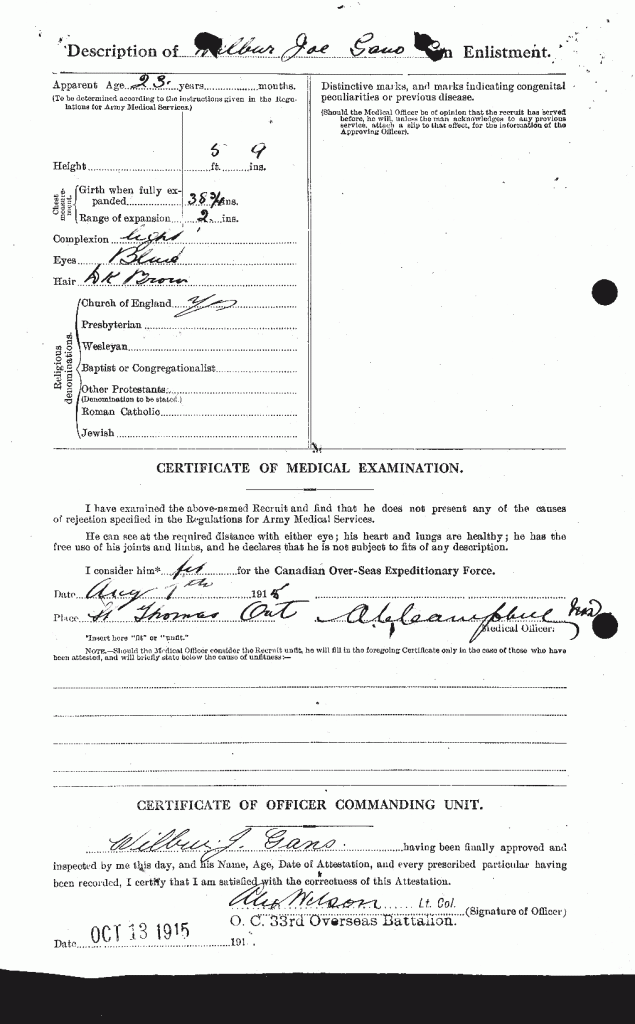 Description of Wilbur Joe Gano on Enlistment.
Apparent Age 23 years months.
(To be determined according to the instructions given in the Regulations for Army Medical Services.)
Height 5 ft. 9 ins.
Chest measurement.
Girth when fully expanded 38 ¾ ins.
Range of expansion 2 ins.
Complexion light
Eyes Blue
Hair DK Brown
Religious denominations.
Church of England yes
Presbyterian
Wesleyan
Baptist or Congregationalist
Other Protestants
(Denomination to be stated.)
Roman Catholic
Jewish
Distinctive marks, and marks indicating congenital
peculiarities or previous disease.
(Should the Medical Officer be of opinion that the recruit has served
before, he will, unless the man acknowledges to any previous
service, attach a slip to that effect, for the information of the
Approving Officer).
CERTIFICATE OF MEDICAL EXAMINATION.
I have examined the above-named Recruit and find that he does not present any of the causes
of rejection specified in the Regulations for Army Medical Services.
He can see at the required distance with either eye; his heart and lungs are healthy; he has the
free use of his joints and limbs, and he declares that he is not subject to fits of any description.
I consider him* fit for the Canadian Over-Seas Expeditionary Force.
Date Aug 1915
Place St Thomas Ont
Campbell
Medical Officer.
*Insert here "fit" or "unfit."
NOTE.—Should the Medical Officer consider the Recruit unfit, he will fill in the foregoing Certificate only in the case of those who have
been attested, and will briefly state below the cause of unfitness:—
CERTIFICATE OF OFFICER COMMANDING UNIT.
Wilbur J. Gano. having been finally approved and
inspected by me this day, and his Name, Age, Date of Attestation, and every prescribed particular having
been recorded, I certify that I am satisfied with the correctness of this Attestation.
Alex Wilson Lt. Col. (Signature of Officer)
O. C. 33rd Overseas Battalion.
Date OCT 13 1915 191